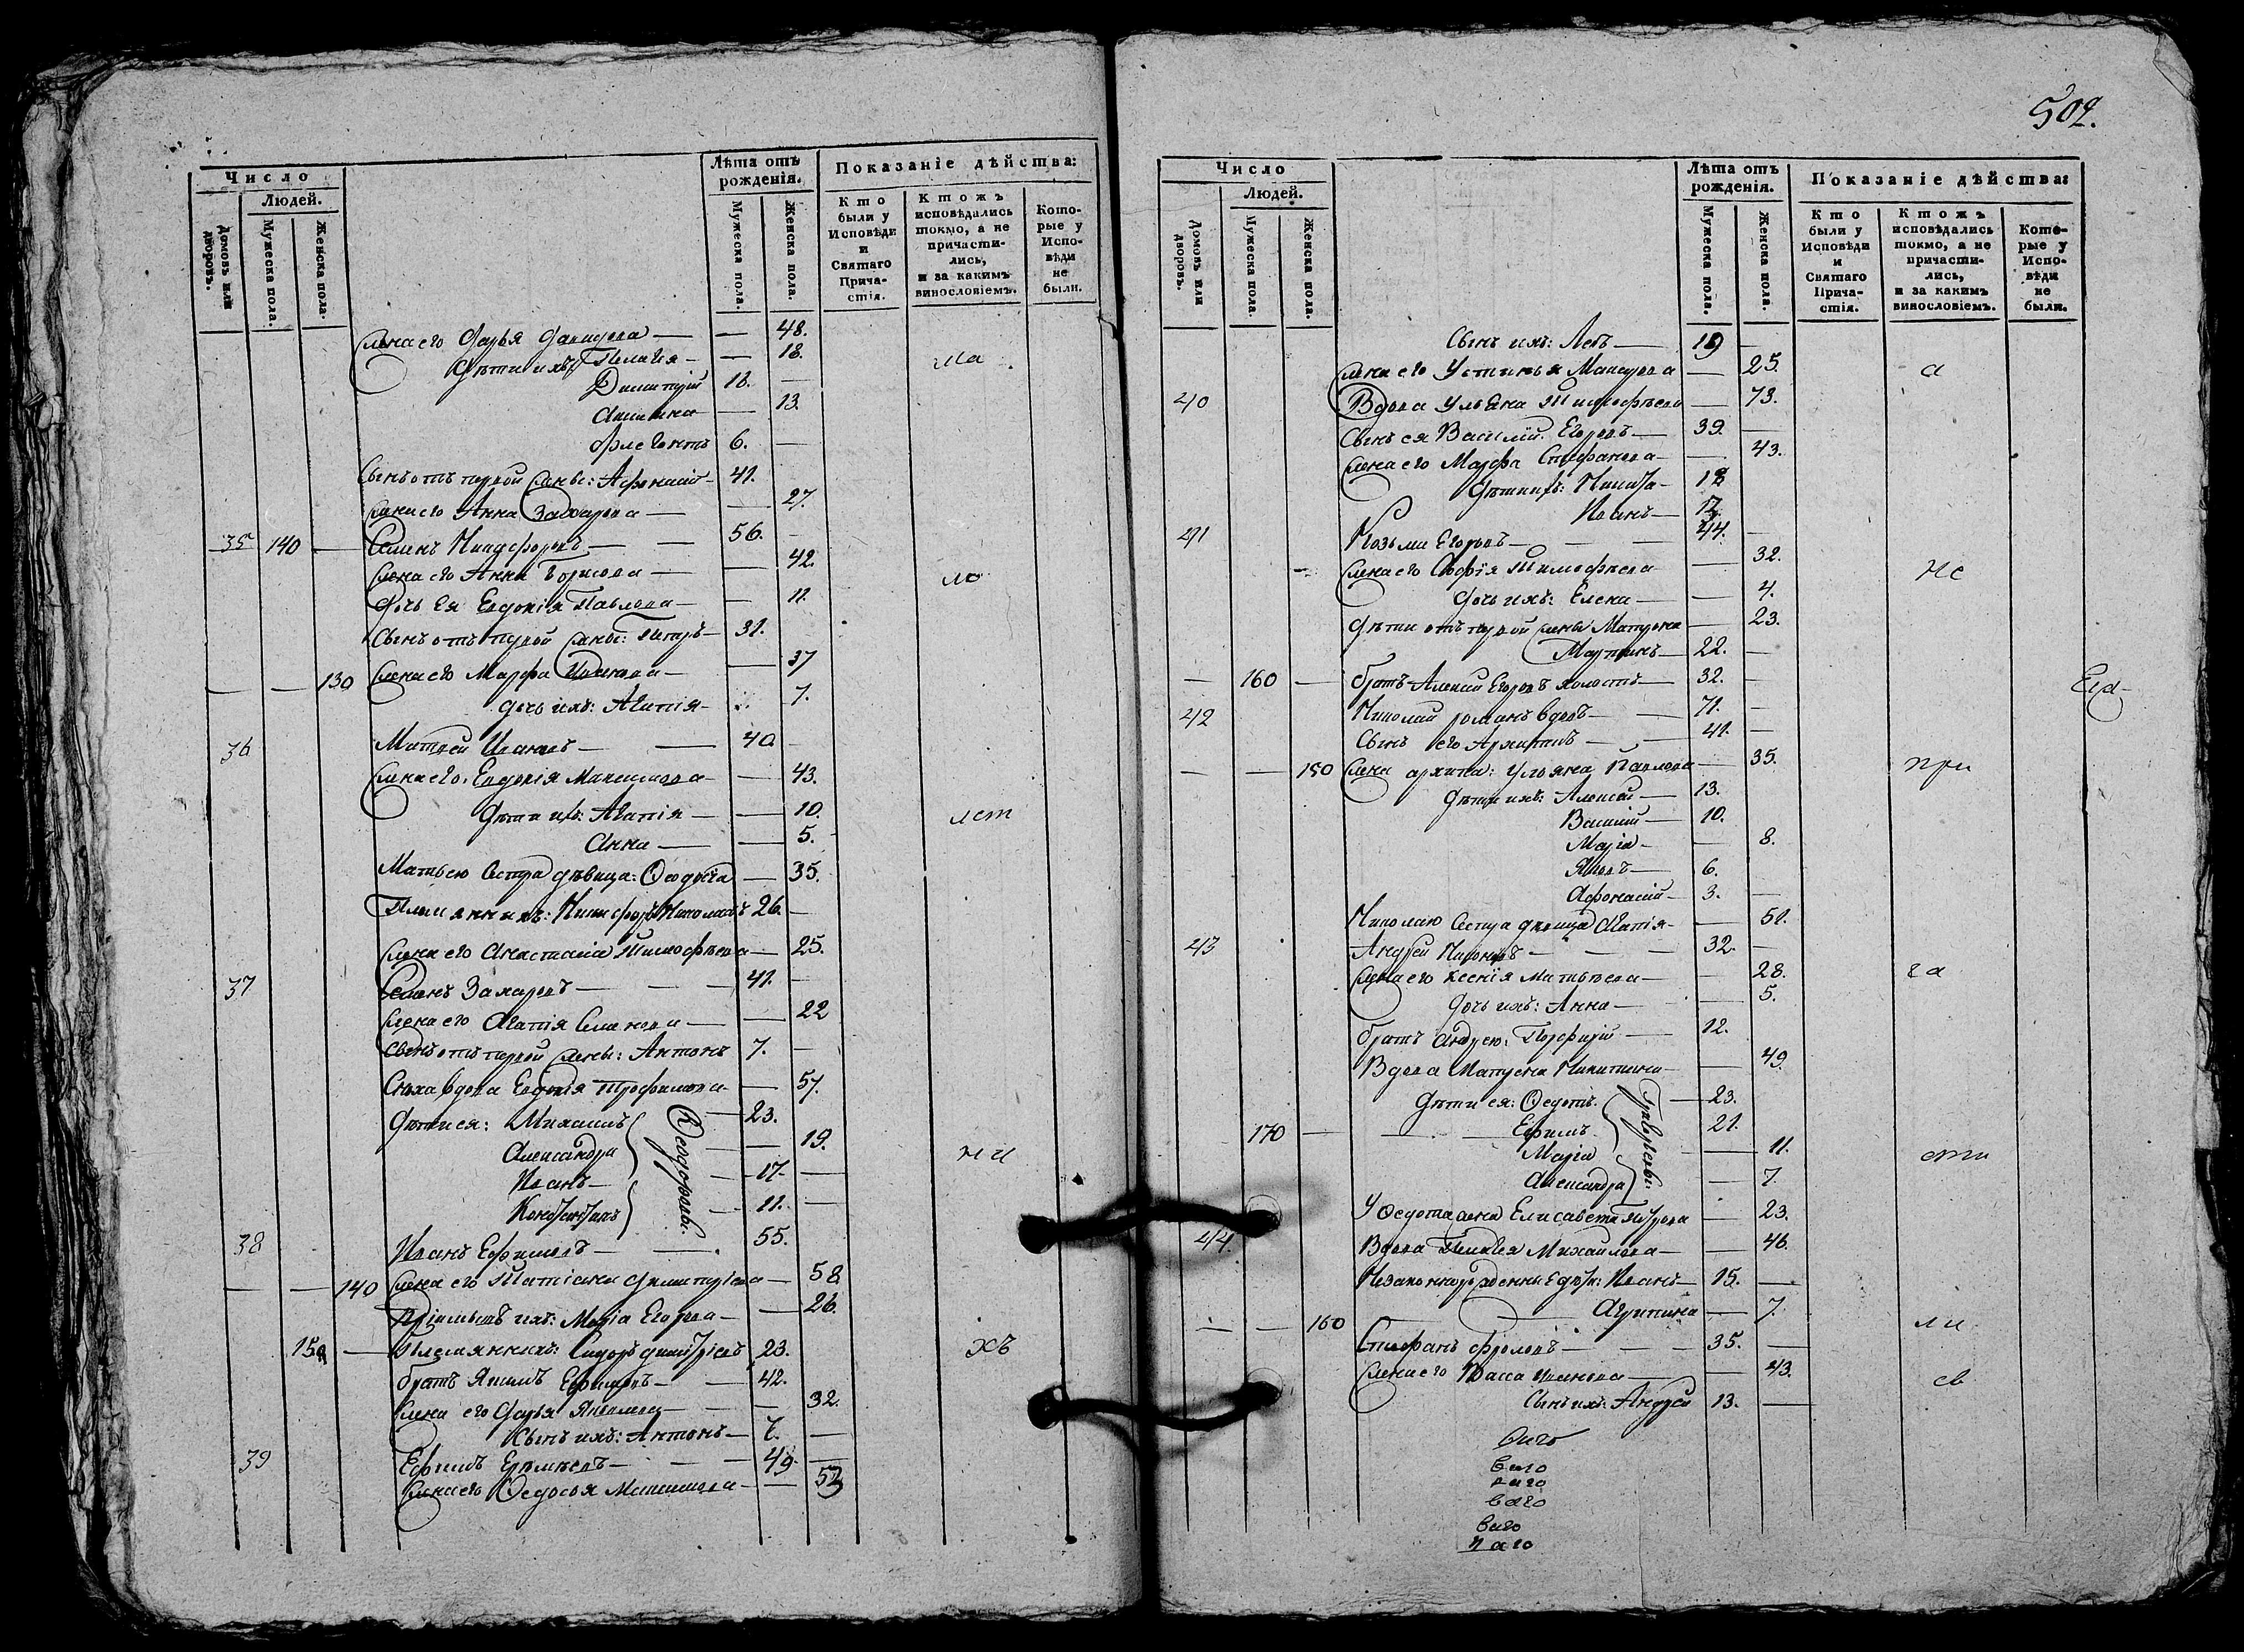 Число
Людей.
Домовъ или дворовъ.
Мужеска пола.
Женска пола.
Лѣта отъ рожденія.
Мужеска пола.
Женска пола.
Показаніе дѣйства:
Кто были у Исповѣди и Святаго Причастія.
Ктожъ исповѣдались токмо, а не причастились, и за какимъ винословіемъ.
Которые у Исповѣди не были.
жена его Дарья Давидова — — 48.
Дѣти ихъ: Пелагія — — 18.
Димитрій 18. —
13.
Флегонтъ 6. —
Сынъ отъ первой жены: Афонасій — 41.
жена его Анна Захарова — — 27.
35 140 — Семенъ Никифоровъ — — 56. —
жена его Анна Борисова — — 42.
дочь ея Евдокія Павлова — — 11.
Сынъ отъ первой жены: Петръ — 31.
— — 130 жена его Марфа Иванова — — 37
дочь ихъ: Агапія — 7.
36 Матвей Ивановъ — — 40 —
жена его Евдокія Максимова — — 43.
Дѣти ихъ: Агапія — — 10.
Анна — — 5.
Матвею сестра дѣвица: — 35.
Племянникъ: Никифоръ Николаевъ 26. —
жена его Анастасіа Тимофѣева — — 25.
37 Семенъ Захаровъ — — 41. —
жена его Агапія Семенова — — 22
сынъ отъ первой жены: Антонъ 7. —
Сноха вдова Евдокія Трофимова — — 57.
Дѣти ея: Михаилъ — 23.
Александра — 19.
Иванъ — — 17. —
Константинъ — 11. —
Ѳеодоровы:
ни
38 Иванъ Ефимовъ — — 55.
— — 140 жена его Татіана Димитріева — 58
Пріемышъ ихъ: Маріа Егорова — — 26.
150 — Племянникъ: Сидоръ Димитріевъ 23.
хъ
братъ Якимъ Ефимовъ — — 42.
жена его Дарья Яковлева — — 32.
Сынъ ихъ: Антонъ — 7. —
39 Ефимъ — — 49. —
жена его Ѳедосья Максимова — — 53
502.
Число
Людей.
Домовъ или дворовъ.
Мужеска пола.
Женска пола.
Лѣта отъ рожденія.
Мужеска пола.
Женска пола.
Показаніе дѣйства:
Кто были у Исповѣди и Святаго Причастія.
Ктожъ исповѣдались токмо, а не причастились, и за какимъ винословіемъ.
Которые у Исповѣди не были.
Сынъ ихъ: Левъ — 19 —
жена его Устинья — 25.
а
40 Вдова Ульяна Тимофѣева — 73.
Сынъ ея Василій Егоровъ — 39. —
жена его Марфа Стефанова — — 43.
Дѣти ихъ: Никита — 18
Иванъ —
41 Козьма Егоровъ — — 44. —
жена его Софія Тимофѣева — 32.
не
дочь ихъ: Елена — — 4.
дѣти отъ первой жены Матрона — 23.
Мартинъ — 22. —
— 160 — братъ Алексей Егоровъ холостъ — 32. —
42 Николай вдовъ — — 71. —
Сынъ его Архипъ — — 41. —
— — 150 жена Архипа: Ульяна Павлова — 35.
при
дѣти ихъ: Алексей — 13.
Василій — 10.
Маріа — — 8.
Яковъ — 6.
Афонасій — 3. —
Николаю сестра дѣвица Агапія — — 51.
43 Андрей — — 32 —
жена его Ксенія Матвѣева — — 28.
ча
дочь ихъ: Анна — — 5.
братъ Андрею: Порфирій — 12.
Вдова Матрена Никитина — — 49.
Дѣти ея: Ѳедотъ. — 23.
170 — Ефимъ 21.
Маріа — 11.
Александра — 7.
Григорьевы:
сти
У Ѳедота жена Елисавета Петрова — 23.
44. Вдова Пелагея Михайлова — — 46.
Незаконнорожденны дѣти: Иванъ — 15. —
— — 160 Агрипина — 7.
ли
Стефанъ Фроловъ — — 35. —
жена его Васса Иванова — — 43.
св
Сынъ ихъ: Андрей 13. —